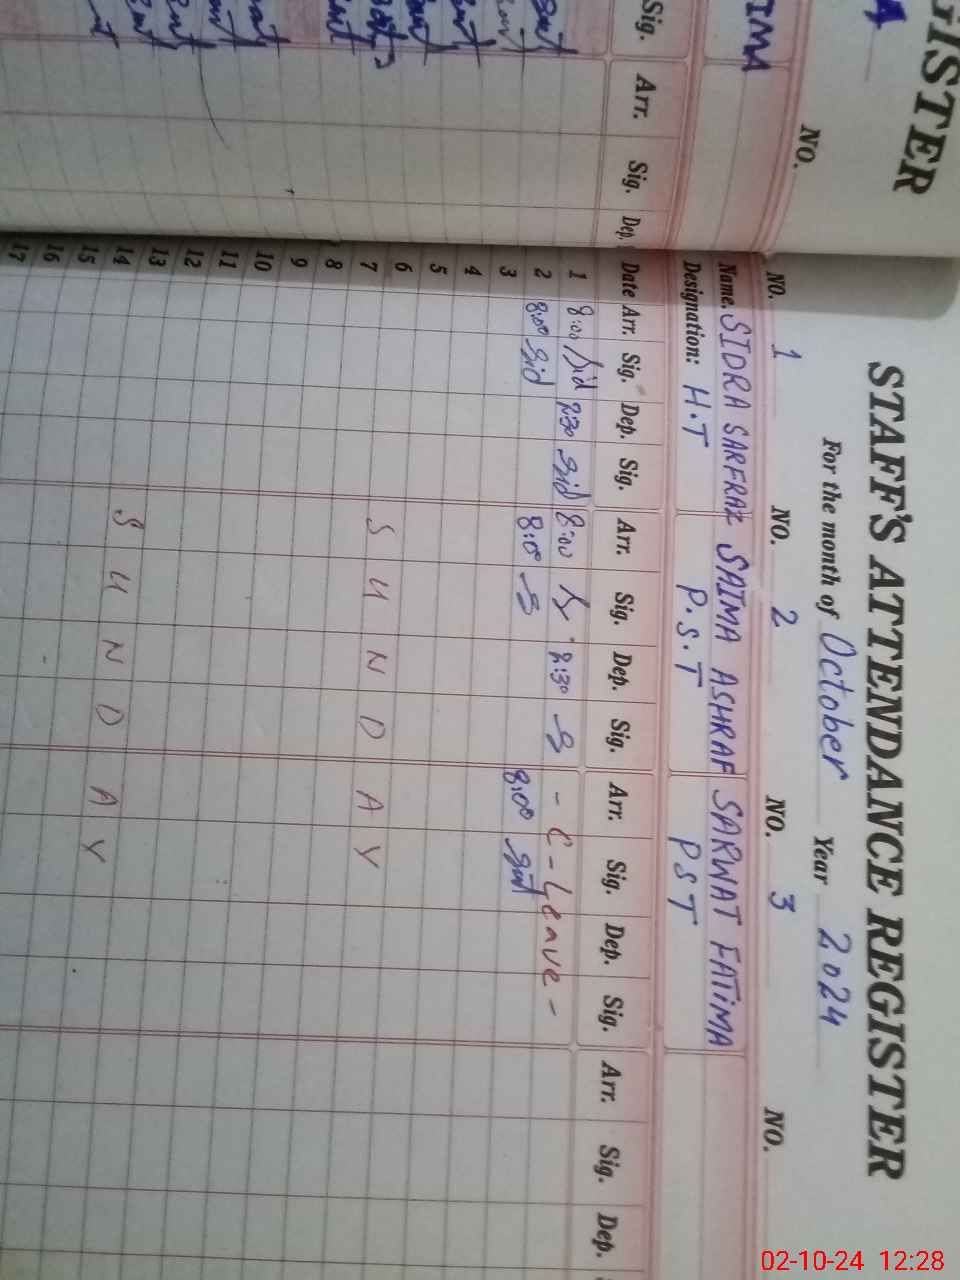 GISTER
NO.
IMA
Sig. Arr. Sig. Dep.
STAFF'S ATTENDANCE REGISTER
For the month of October Year 2024
NO. 1 NO. 2 NO. 3 NO.
Name. SIDRA SARFRAZ SAIMA ASHRAF SARWAT FATIMA
Designation: H.T P.S.T PST
Date Arr. Sig. Dep. Sig. Arr. Sig. Dep. Sig. Arr. Sig. Dep. Sig. Arr. Sig. Dep.
1 8:00 Sid 2:30 Sid 8:00 S 2:30 S - C-Leave -
2 8:00 Sid 8:00 S 8:00
3
4
5
6
7 SUNDAY
8
9
10
11
12
13
14 SUNDAY
15
16
17
02-10-24 12:28